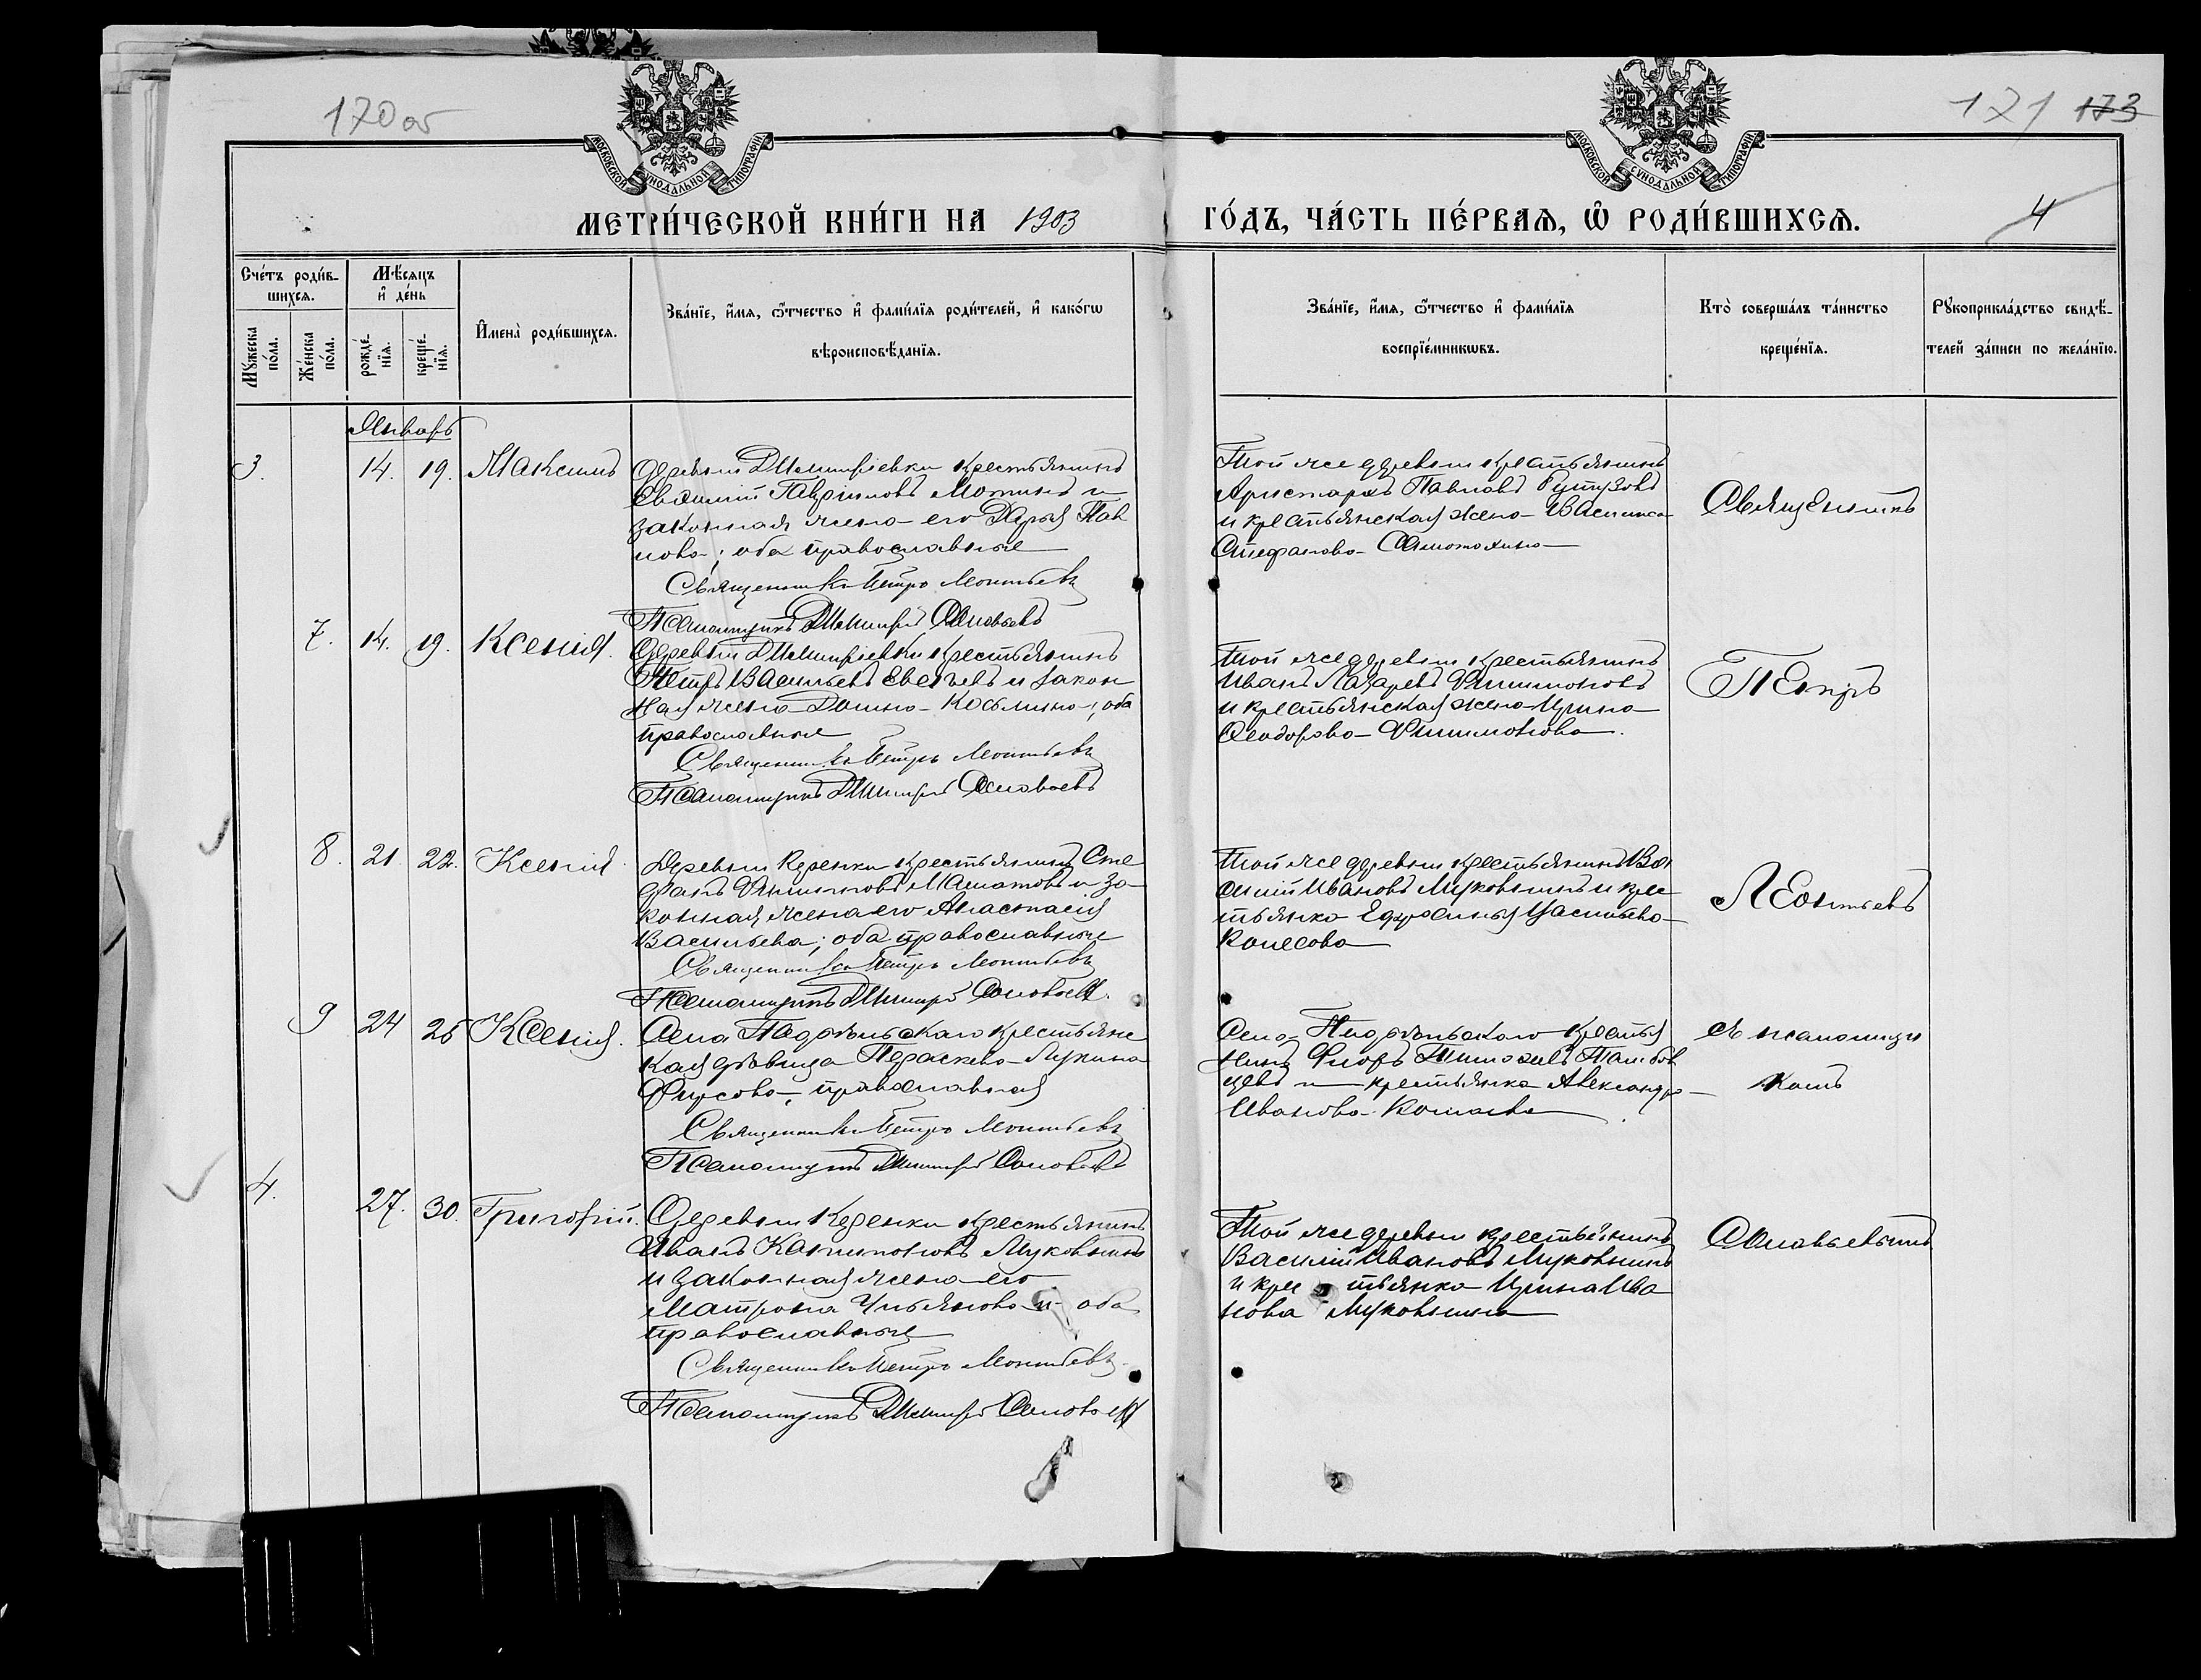 170 об
171 173
МОСКОВСКОЙ СѴНОДАЛЬНОЙ ТИПОГРАФІИ
МОСКОВСКОЙ СѴНОДАЛЬНОЙ ТИПОГРАФІИ
МЕТРИ́ЧЕСКОЙ КНИ́ГИ НА 1903
ГО́ДЪ, ЧА́СТЬ ПЕ́РВАѦ, Ѽ РОДИ́ВШИХСѦ.
4
Счє́тъ роди́в-
шихсѧ.
Мѣ́сѧцъ
и҆ дє́нь
Мꙋ́жеска по́ла.
Жє́нска по́ла.
рождє́-
нїѧ.
крещє́-
нїѧ.
И҆мєна̀ роди́вшихсѧ.
Зва́нїе, и҆́мѧ, ѻ҆́тчество и҆ фами́лїѧ роди́телей, и҆ како́гѡ
вѣроисповѣ́данїѧ.
Зва́нїе, и҆́мѧ, ѻ҆́тчество и҆ фами́лїѧ
воспрїє́мникѡвъ.
Кто̀ соверша́лъ та́инство
креще́нїѧ.
Рꙋкоприкла́дство свидѣ́-
телей за́писи по жела́нїю.
Январь
3. 14. 19. Максимъ
Деревни Дмитріевки крестьянинъ
Евфимій Гавриловъ Мотинъ и
законная жена его Дарья Пав
лова; оба православные
Священникъ Петръ Леонтьевъ
Псаломщикъ Дмитрій Соловьевъ
Той же деревни крестьянинъ
Аристархъ Павловъ
и крестьянская жена Василиса
Стефанова Самотохина
Священникъ
7. 14. 19. Ксенія.
Деревни Дмитріевки крестьянинъ
Петръ Васильевъ Евсѣевъ и закон
ная жена Домна Космина; оба
православные
Священникъ Петръ Леонтьевъ
Псаломщикъ Дмитрій Соловьевъ
Той же деревни крестьянинъ
Иванъ Лазаревъ Филимоновъ
и крестьянская жена Ирина
Феодорова Филимонова.
Петръ
8. 21 22. Ксенія.
Деревни Керенки крестьянинъ Сте
фанъ Филипповъ Маматовъ и за-
конная жена его Анастасія
Васильева; оба православные
Священникъ Петръ Леонтьевъ
Псаломщикъ Дмитрій Соловьевъ.
Той же деревни крестьянинъ Ва
силій Ивановъ Муковнинъ и крес
тьянка Ефросинья Васильева
Колесова
Леонтьевъ
9 24 25 Ксенія.
Села Подвальскаго крестьянс
кая дѣвица Параскева Лукина
Фирсова, православная
Священникъ Петръ Леонтьевъ
Псаломщикъ Дмитрій Соловьевъ
Села Подвальскаго крестья
нинъ Флоръ Тимофеевъ Тамбов
цевъ и крестьянка Александра
Иванова
съ псаломщи
комъ
4. 27. 30. Григорій.
Деревни Керенки крестьянинъ
Иванъ Капитоновъ Муковнинъ
и законная жена его
Матрона Ульянова оба
православные
Священникъ Петръ Леонтьевъ.
Псаломщикъ Дмитрій Соловьевъ
Той же деревни крестьянинъ
Василій Ивановъ Муковнинъ
и крестьянка Ирина Ива
нова Муковнина
Соловьевымъ